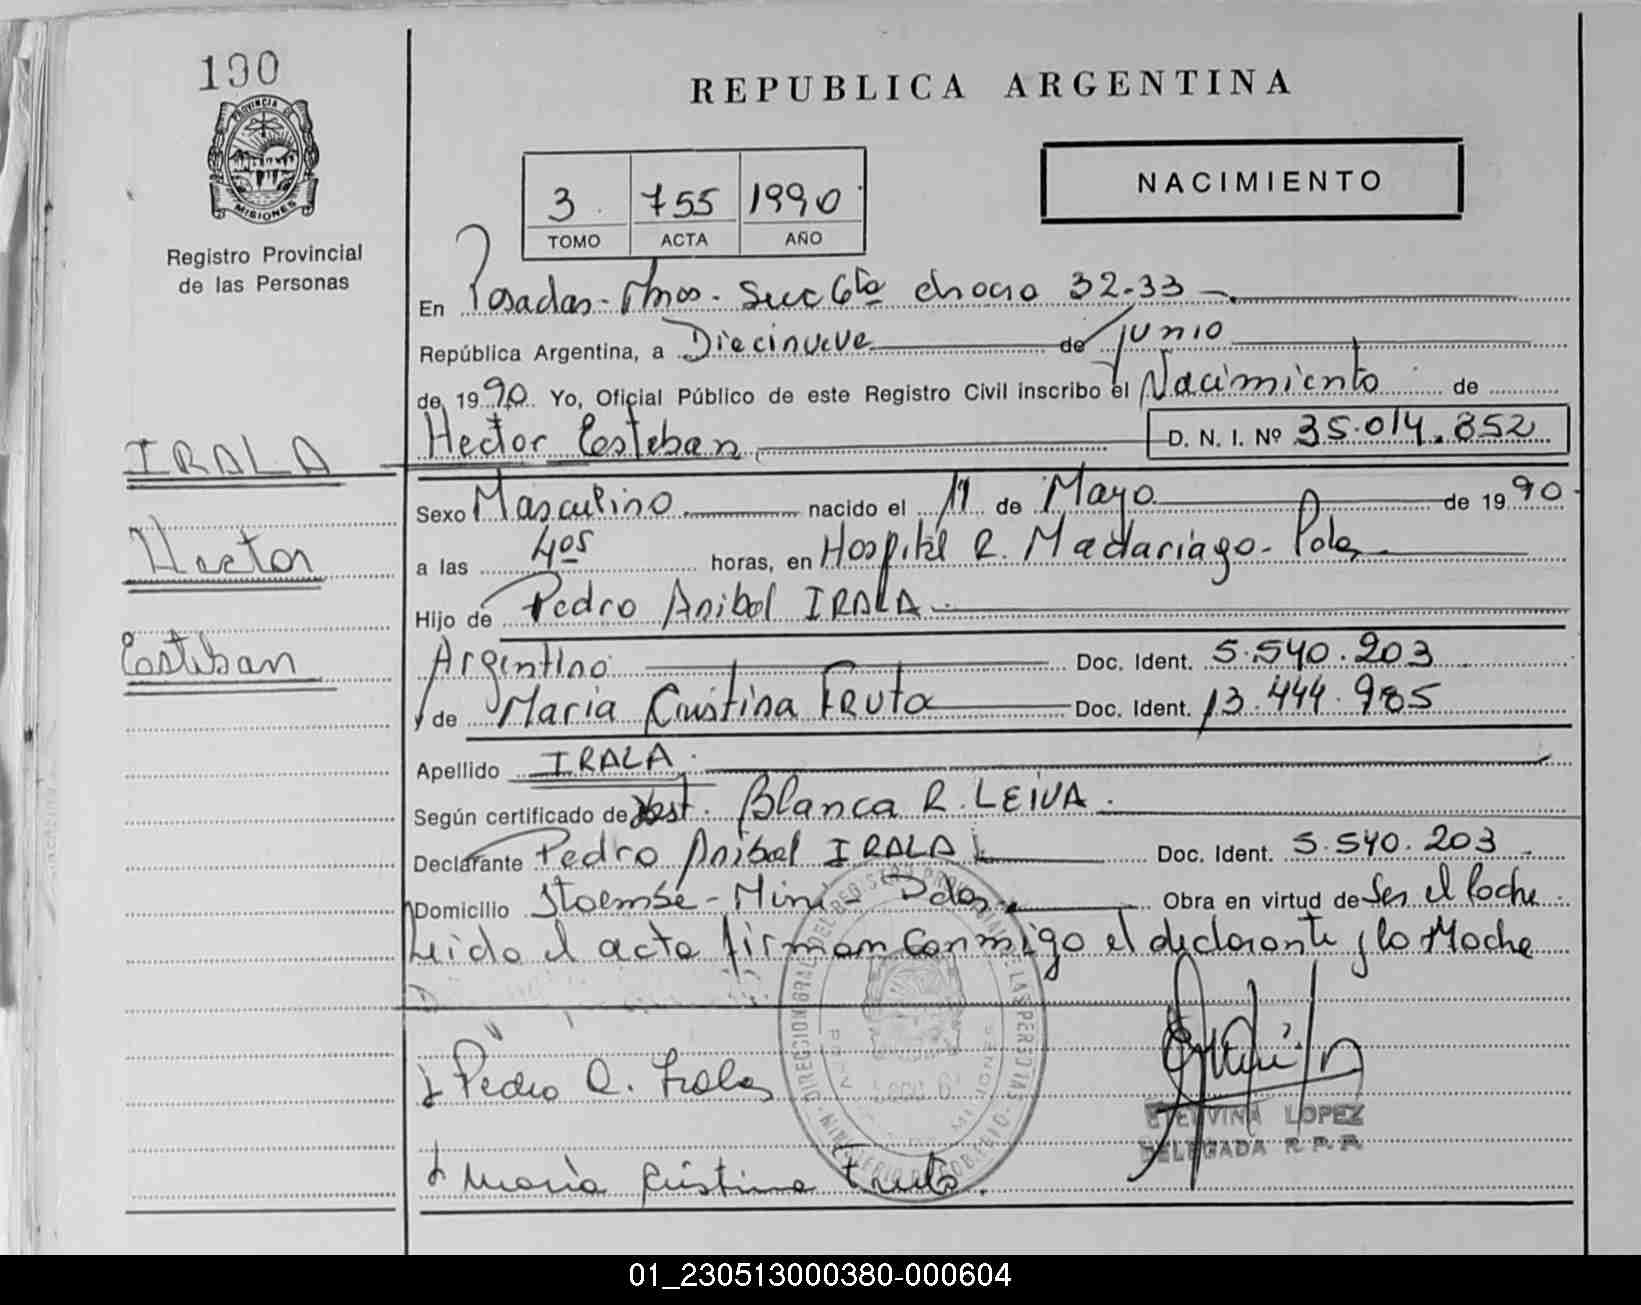 190
PROVINCIA DE
MISIONES
Registro Provincial
de las Personas
REPUBLICA ARGENTINA
3 755 1990
TOMO ACTA AÑO
NACIMIENTO
En Posadas - Mnes. Succ 6ta chacra 32-33
República Argentina, a Diecinueve de junio
de 1990. Yo, Oficial Público de este Registro Civil inscribo el Nacimiento de
Hector Esteban D. N. I. Nº 35.014.852
IRALA
Hector
Esteban
Sexo Masculino nacido el 11 de Mayo de 1990
a las 4os horas, en Hospital R. Madariaga - Pdas
Hijo de Pedro Anibal IRALA
Argentino Doc. Ident. 5.540.203
y de Maria Cristina Fruto Doc. Ident. 13.444.985
Apellido IRALA
Según certificado de Obst. Blanca R. LEIVA
Declarante Pedro Anibal IRALA Doc. Ident. 5.540.203
Domicilio Itaembé - Miní - Pdas Obra en virtud de Ser el Padre
Leida el acta firman conmigo el declarante y la Madre
Pedro A. Irala
DIRECCION GRAL. DEL REGISTRO PROVINCIAL DE LAS PERSONAS
MINISTERIO DE GOBIERNO
ETELVINA LOPEZ
DELEGADA R.P.P.
Maria Cristina Fruto
01_230513000380-000604